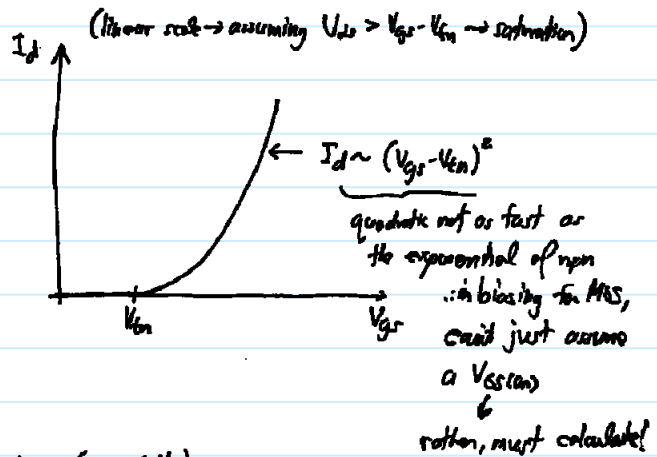 (linear scale → assuming Vds > Vgs - Vtn → saturation)
Id
← Id ~ (Vgs - Vtn)²
quadratic not as fast as
the exponential of npn
∴ in biasing for MOS,
Vtn
Vgs
can't just assume
a VGS(on)
↓
rather, must calculate!